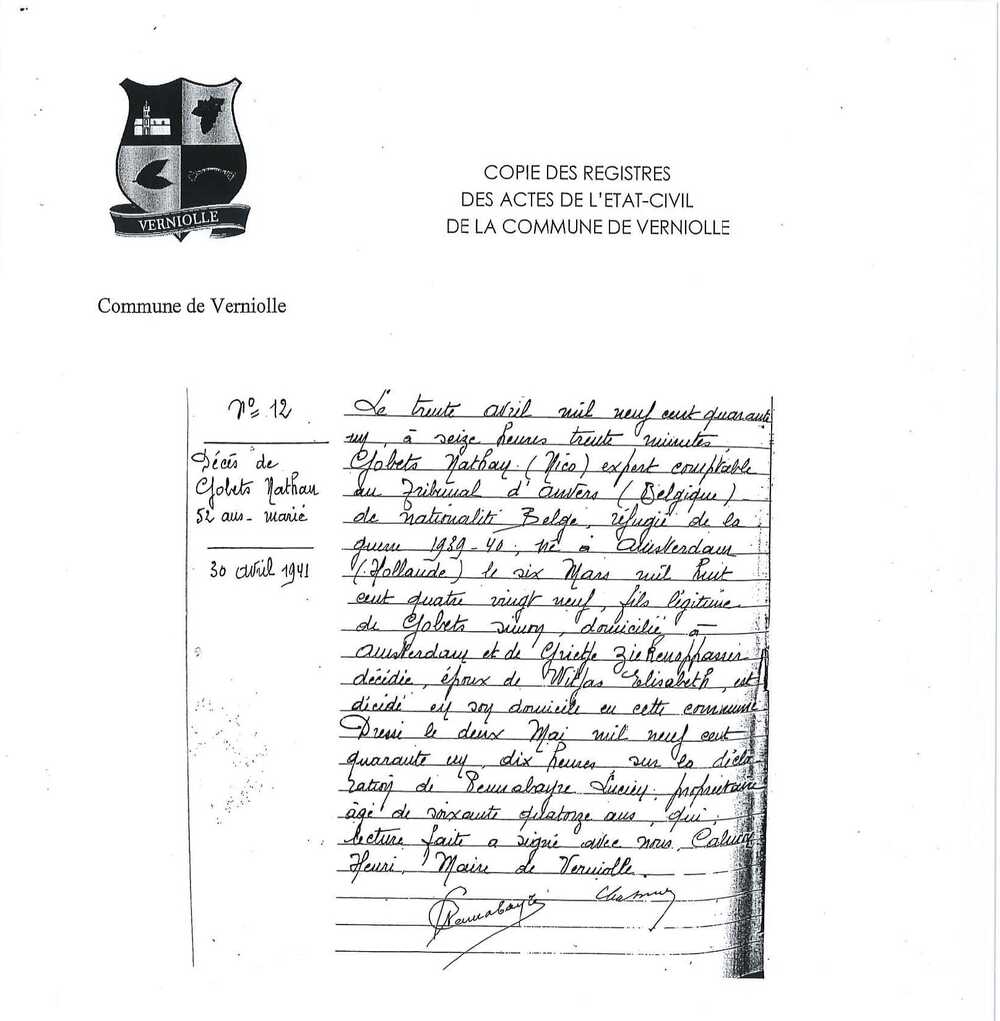 VERNIOLLE
COPIE DES REGISTRES
DES ACTES DE L'ETAT-CIVIL
DE LA COMMUNE DE VERNIOLLE
Commune de Verniolle
Nº 12
Décès de
Gobets Nathan
52 ans - marié
30 avril 1941
Le trente avril mil neuf cent quarante
un, à seize heures trente minutes
Gobets Nathan (Nico) expert comptable
au Tribunal d'Anvers (Belgique)
de nationalité Belge, réfugié de la
guerre 1939-40, né à Amsterdam
(Hollande) le six Mars mil huit
cent quatre vingt neuf, fils légitime
de Gobets Simon, domicilié à
Amsterdam et de Grietje
décédée, époux de Elisabeth, est
décédé en son domicile en cette commune
Dressé le deux Mai mil neuf cent
quarante un, dix heures sur la décla
ration de Pennabayre Lucien, propriétaire
âgé de soixante quatorze ans, qui,
lecture faite a signé avec nous,
Henri, Maire de Verniolle.
Pennabayre